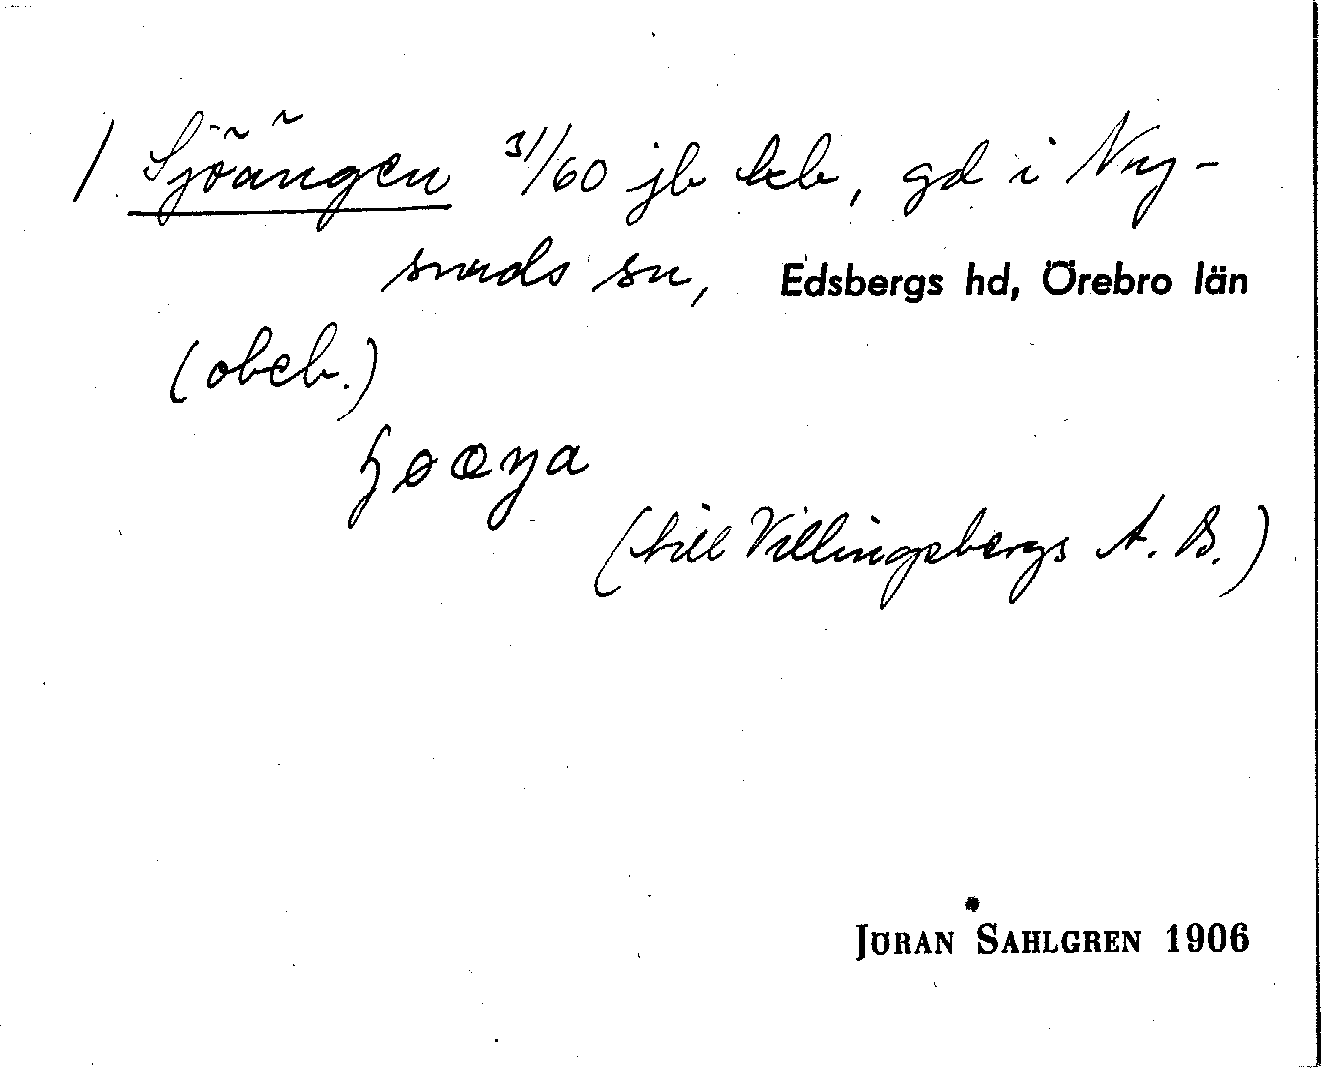 1. Sjöängen 31/60 jb beb, gd i Ny-
sunds sn, Edsbergs hd, Örebro län
(obeb.)
(till Villingsbergs A. B.)
JÖRAN SAHLGREN 1906